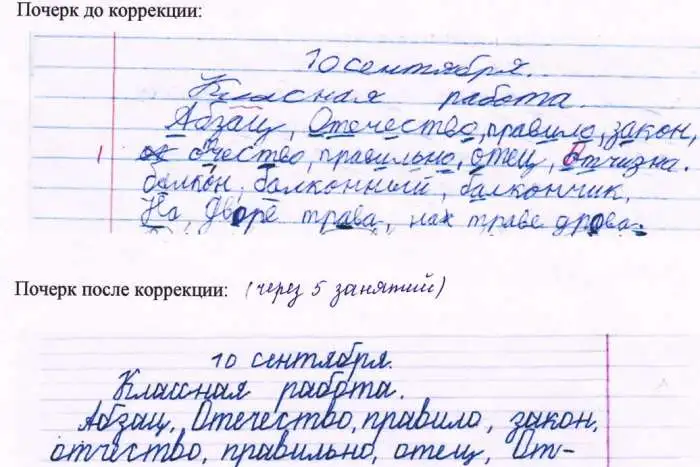 Почерк до коррекции:
10 сентября.
Классная работа.
Абзац, Отечество, правило, закон,
отчество, правильно, отец, Отчизна.
балкон, балконный, балкончик.
На дворе трава, на траве дрова.
Почерк после коррекции: (через 5 занятий)
10 сентября.
Классная работа.
Абзац, Отечество, правило, закон,
отчество, правильно, отец, От-